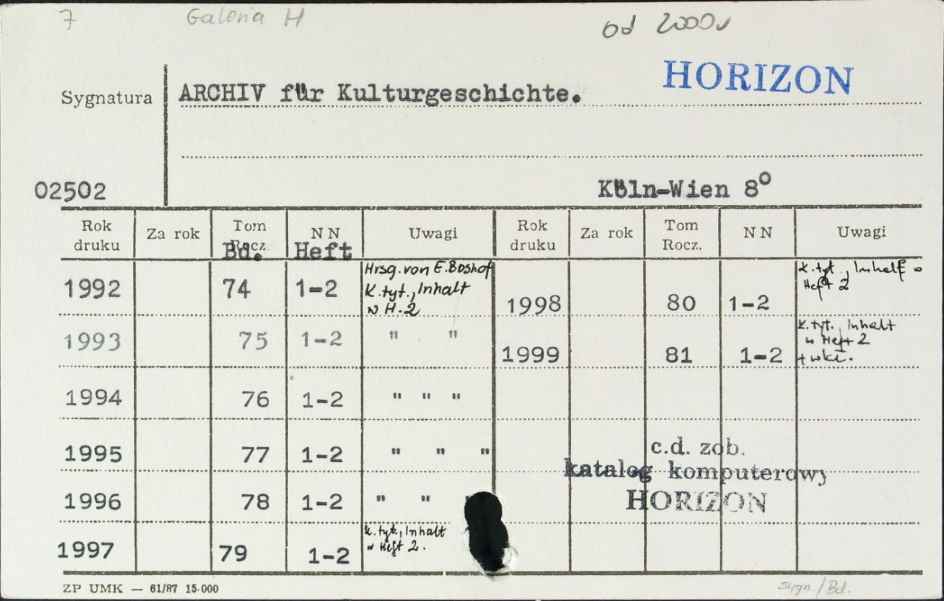 7 Galeria H od 2000
HORIZON
Sygnatura ARCHIV für Kulturgeschichte.
02502 Köln-Wien 8°
Rok druku Za rok Tom Rocz. NN Uwagi Rok druku Za rok Tom Rocz. NN Uwagi
Bd. Heft
1992 74 1-2 Hrsg. von E. Boshof
K. tyt., Inhalt
w H. 2
1998 80 1-2 K. tyt., Inhalt w
Heft 2
1993 75 1-2 " "
1999 81 1-2 K. tyt., Inhalt
w Heft 2
1994 76 1-2 " " "
1995 77 1-2 " " "
c.d. zob.
katalog komputerowy
HORIZON
1996 78 1-2 " "
1997 79 1-2 K. tyt., Inhalt
w Heft 2.
ZP UMK — 61/87 15-000
Sygn./Bd.